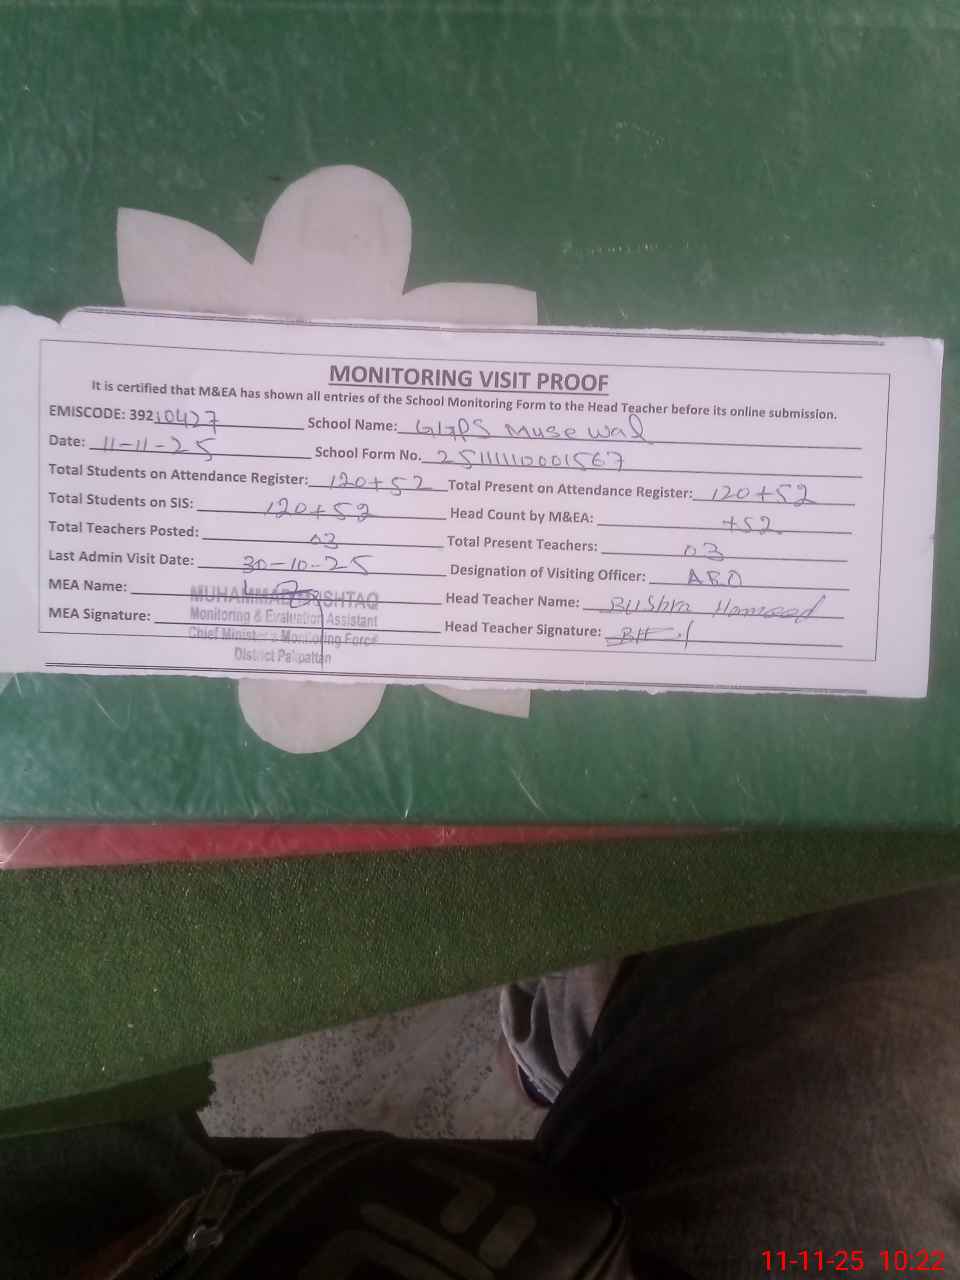 MONITORING VISIT PROOF
It is certified that M&EA has shown all entries of the School Monitoring Form to the Head Teacher before its online submission.
EMISCODE: 39210427 School Name: GGPS Musewal
Date: 11-11-25 School Form No. 25111110001567
Total Students on Attendance Register: 120+52 Total Present on Attendance Register: 120+52
Total Students on SIS: 120+52 Head Count by M&EA: +52
Total Teachers Posted: 03 Total Present Teachers: 03
Last Admin Visit Date: 30-10-25 Designation of Visiting Officer:
MEA Name: MUHAMMAD ISHTAQ Head Teacher Name: Bushra Hameed
MEA Signature: Monitoring & Evaluation Assistant Head Teacher Signature:
Chief Minister's Monitoring Force
District Pakpattan
11-11-25 10:22